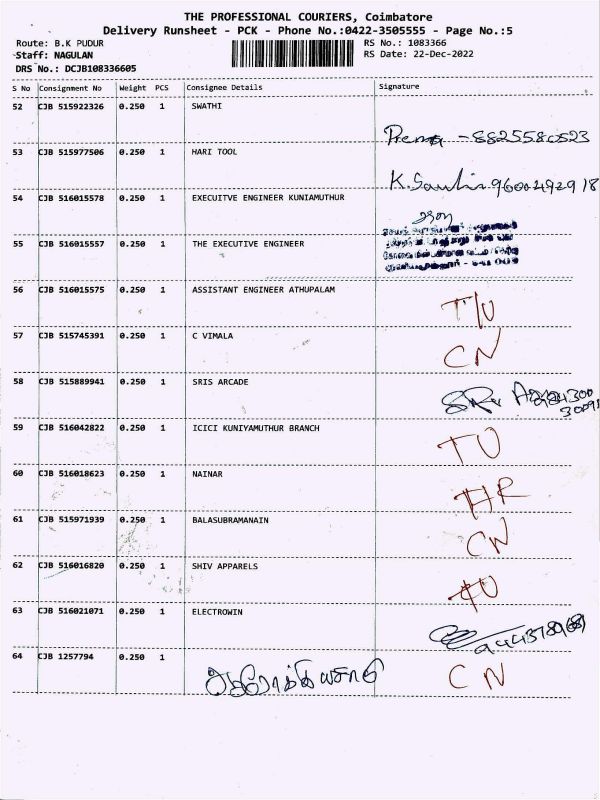 THE PROFESSIONAL COURIERS, Coimbatore
Delivery Runsheet - PCK - Phone No.:0422-3505555 - Page No.:5
Route: B.K PUDUR RS No.: 1083366
Staff: NAGULAN RS Date: 22-Dec-2022
DRS No.: DCJB108336605
S No Consignment No Weight PCS Consignee Details Signature
52 CJB 515922326 0.250 1 SWATHI
Prema - 8825580523
53 CJB 515977506 0.250 1 HARI TOOL
K. 9600492918
54 CJB 516015578 0.250 1 EXECUITVE ENGINEER KUNIAMUTHUR
55 CJB 516015557 0.250 1 THE EXECUTIVE ENGINEER
56 CJB 516015575 0.250 1 ASSISTANT ENGINEER ATHUPALAM
T/U
57 CJB 515745391 0.250 1 C VIMALA
CN
58 CJB 515889941 0.250 1 SRIS ARCADE
59 CJB 516042822 0.250 1 ICICI KUNIYAMUTHUR BRANCH
TU
60 CJB 516018623 0.250 1 NAINAR
HR
61 CJB 515971939 0.250 1 BALASUBRAMANAIN
CN
62 CJB 516016820 0.250 1 SHIV APPARELS
63 CJB 516021071 0.250 1 ELECTROWIN
64 CJB 1257794 0.250 1
CN